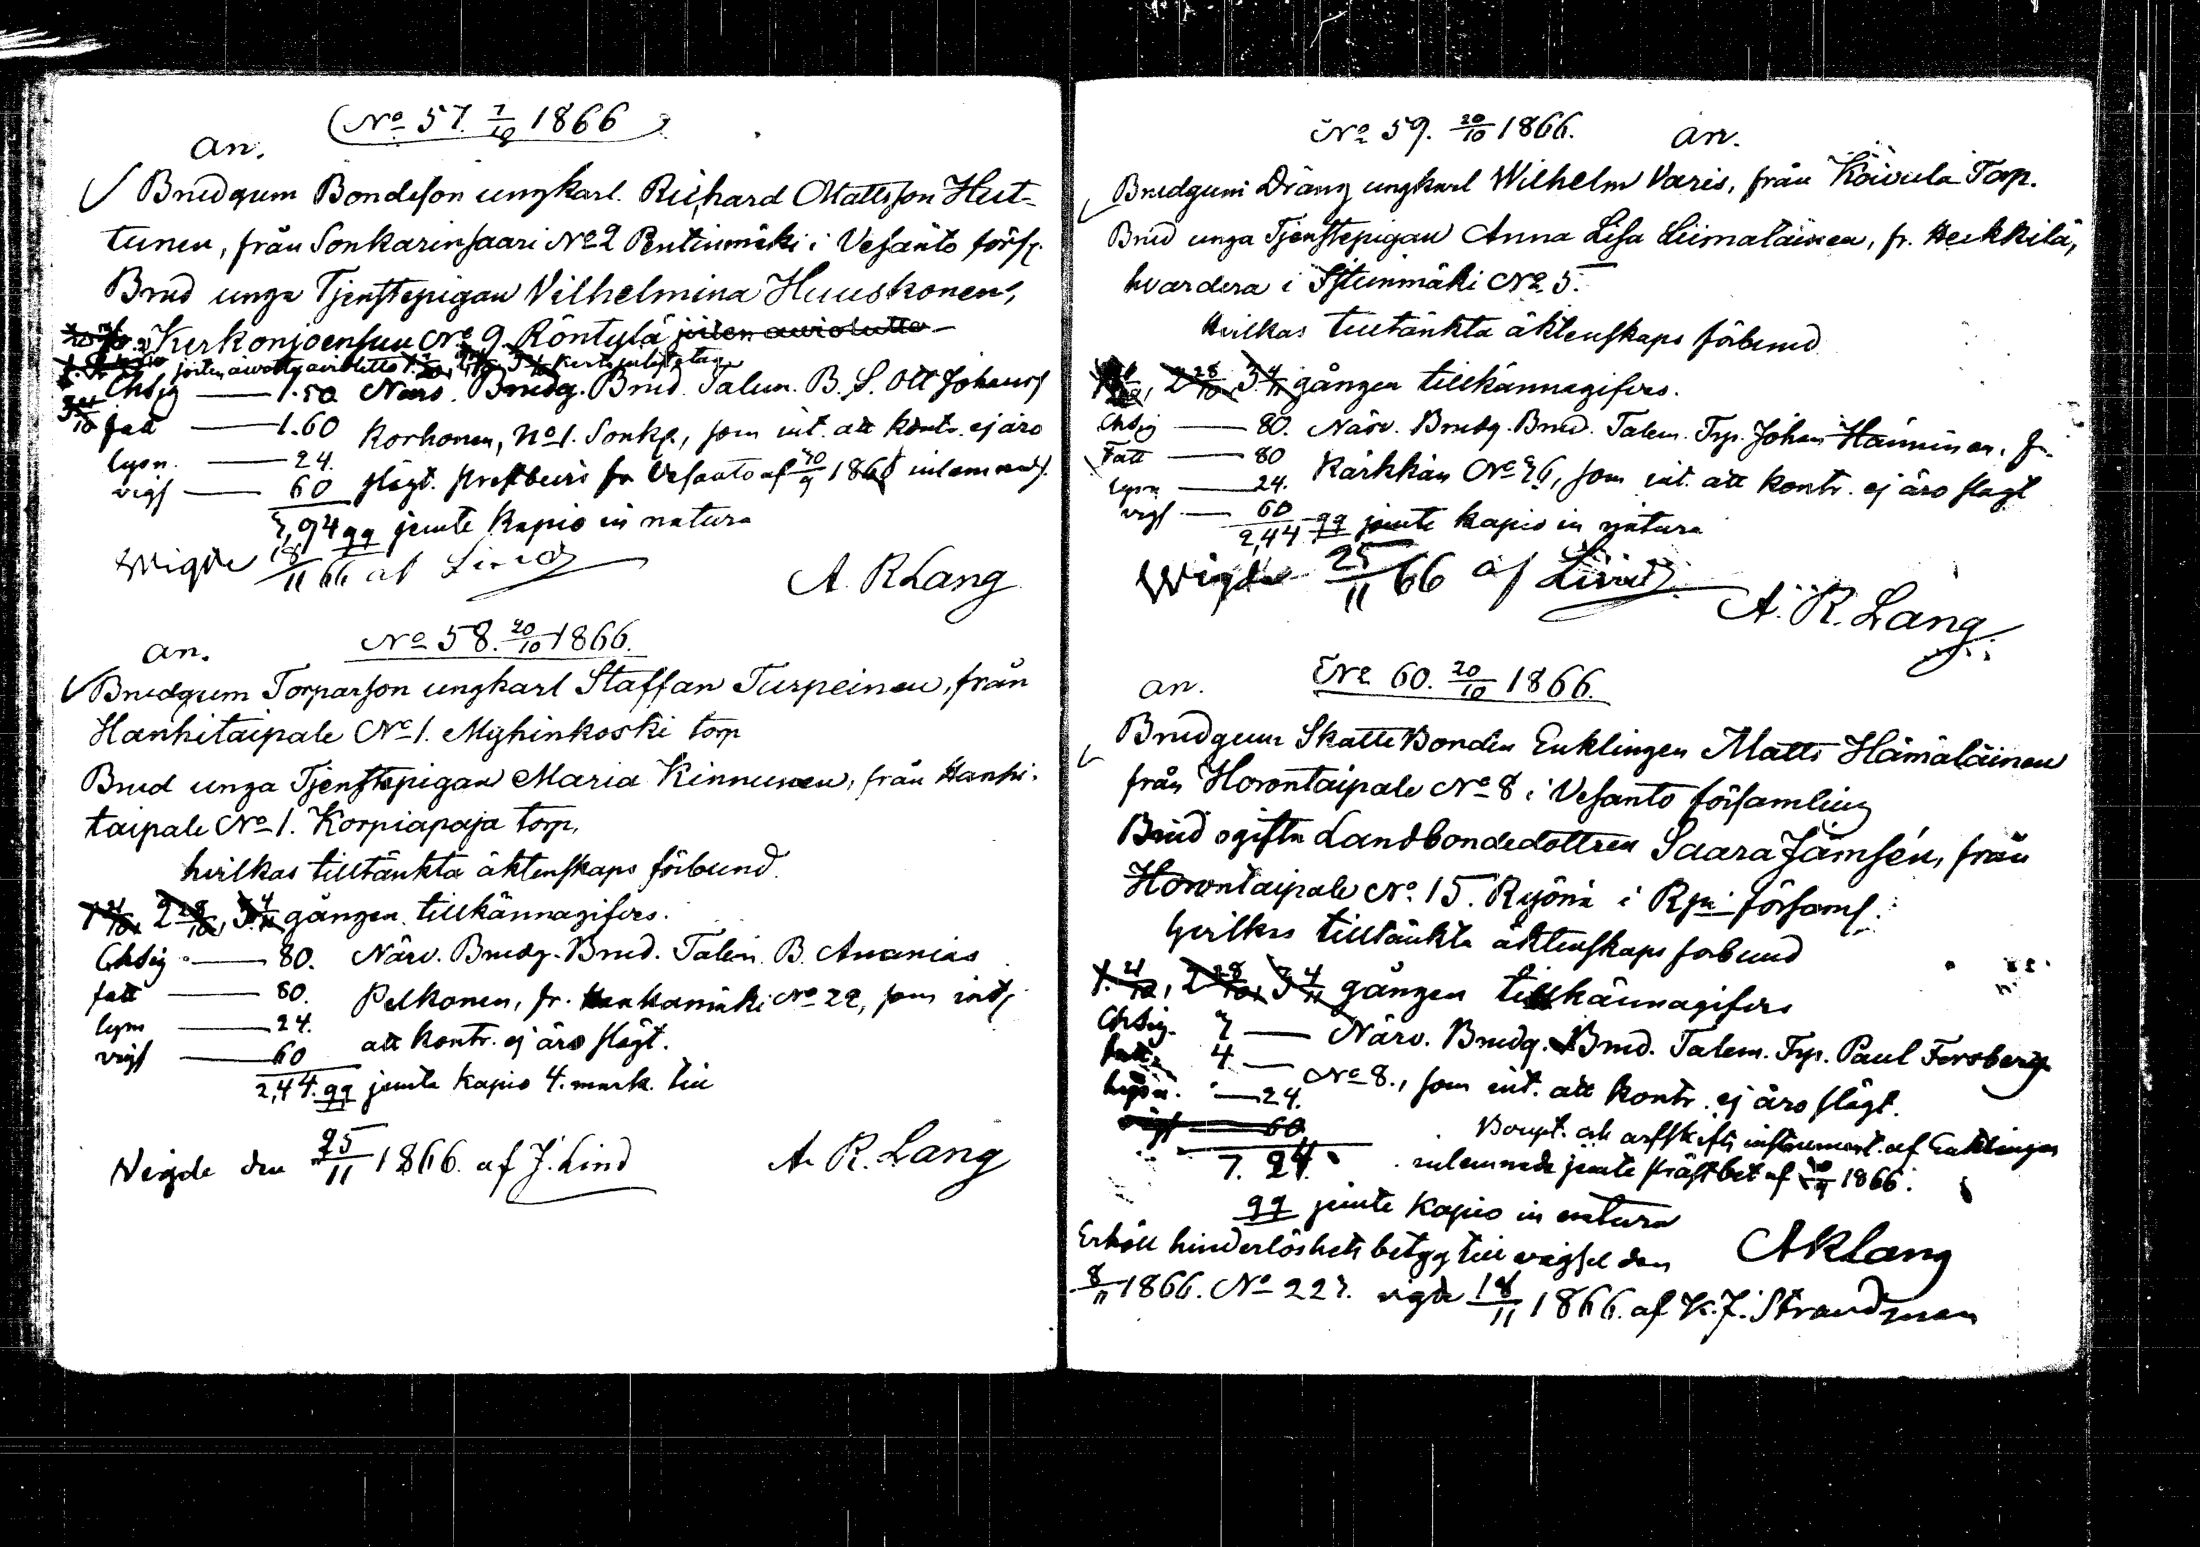 No 57. 7/10 1866
an.
Brudgum Bondeson ungkarl. Richard Mattsson Hut-
tunen, från Sonkarinsaari No 2 Pentinmäki i Vesanto förs.
Brud unga Tjenstepigan Vilhelmina Huuskonen,
Kerkonjoensuu No 9 Röntylä
Chsig — 1.50 Närv. Brudg. Brud. Talem. B. S. Ott Johanss
fatt — 1.60 Korhonen, No 1. Sonk., som int. att kontr. ej äro
lysn. — 24. slägt. prestbevis fr Vesanto af 1866 inlemnad.
vigs — 60
7,94 99 jemte Kapio in natura
Wigde 18/11 66 af Lind
A. R Lang
No 58. 20/10 1866.
an.
Brudgum Torparson ungkarl Staffan Turpeinen, från
Hanhitaipale No 1. Myhinkoski torp
Brud unga Tjenstepigan Maria Kinnunen, från Hanhi-
taipale No 1. Korpiapaja torp,
hvilkas tilltänkta äktenskaps förbund.
1 21/10, 2 28/10, 3 4/11 gången tillkännagifves.
Chsig — 80. Närv. Brudg. Brud. Talem. B. Ananias
fatt — 80. Pelkonen, fr. No 22, som int.
lysn — 24. att kontr. ej äro slägt.
vigs — 60
2,44. 99 jemte Kapio 4. mark. till
Vigde den 25/11 1866. af J. Lind
A. R. Lang
No 59. 20/10 1866.
an.
Brudgum Dräng ungkarl Wilhelm Varis, från Koivula Torp.
Brud unga Tjenstepigan Anna Lisa Liimatainen, fr. Heikkilä,
hvardera i No 5.
Hvilkas tilltänkta äktenskaps förbund
2 28/10, 3 4/11 gången tillkännagifves.
Chsig — 80. Närv. Brudg. Brud. Talem. Trp. Johan Hänninen, fr.
Fatt — 80 Kärkkäis No 26, som int. att kontr. ej äro slägt
lysn — 24.
vigs — 60
2,44 99 jemte kapio in natura
Wigde 25/11 66 af Lind
A. R. Lang.
No 60. 20/10 1866.
an.
Brudgum Skatte Bonden Enklingen Matts Hämäläinen
från Horontaipale No 8 i Vesanto församling
Brud ogifta Landbondedottren Saara Jämsén, från
Horontaipale No 15. Ryönä i Rpi församl.
hvilkas tilltänkta äktenskaps forbund
1. 21/10, 2 28/10, 3 4/11 gången tillkännagifves
Chsig. 3 — Närv. Brudg. Brud. Talem. Trp. Paul Forsberg
fatt. 4 — No 8., som int. att kontr. ej äro slägt.
lysn. — 24.
vigs — 60
Boupt. och arfskifts instrument af Enklingen
7. 24. inlemnade jemte prästbet af 1866.
99 jemte Kapio in natura
Erhöll hinderlöshets betyg till vigsel den
A R Lang
8/11 1866. No 227. vigde 18/11 1866. af K. J. Strandman